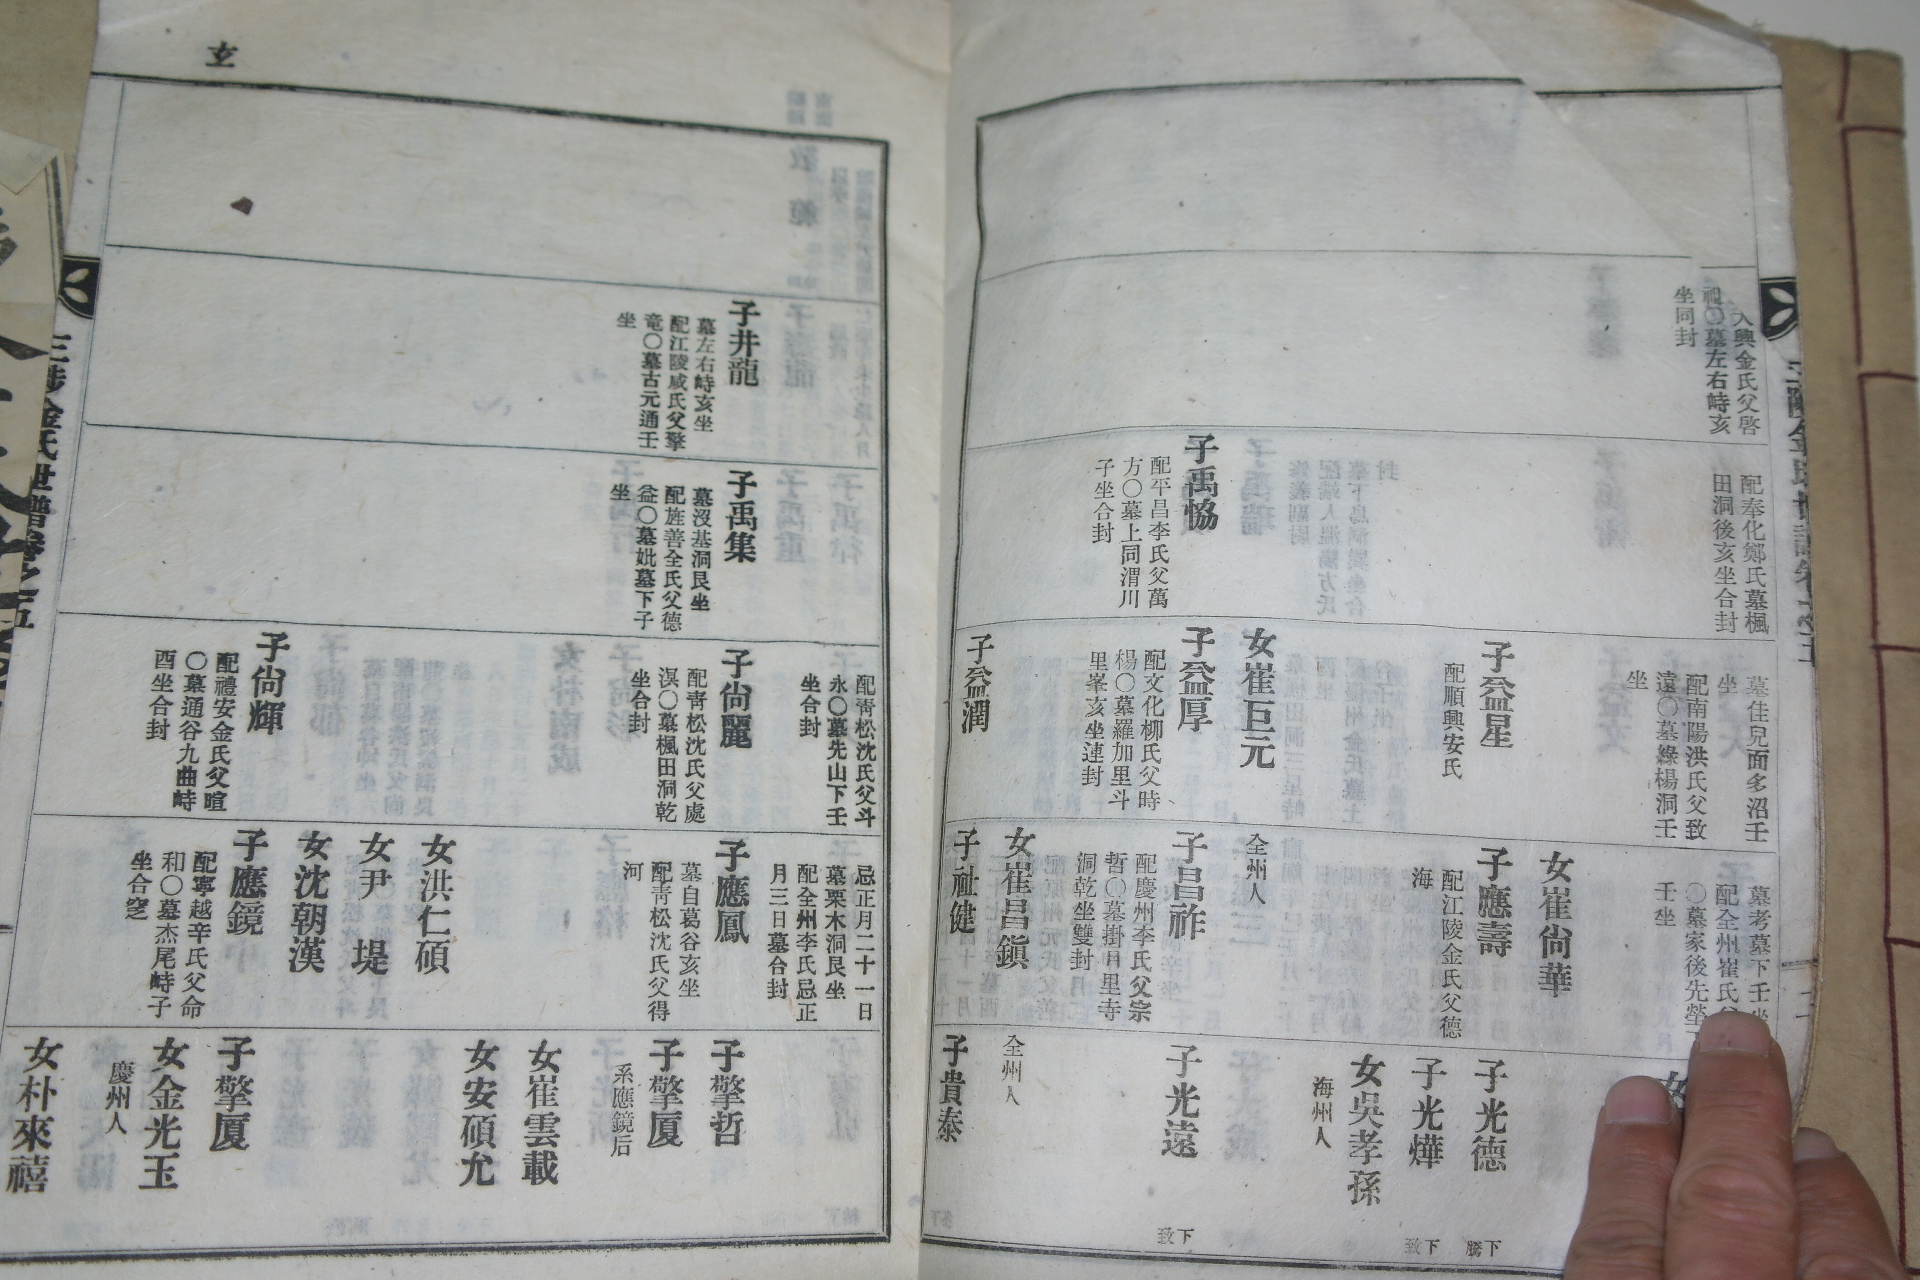 入興金氏父啓
祖〇墓左右峙亥
坐同封
配奉化鄭氏墓楓
田洞後亥坐合封
子禹恊
配平昌李氏父萬
方〇墓上同渭川
子坐合封
墓佳兒面多沼壬
坐
配南陽洪氏父致
遠〇墓綠楊洞壬
坐
子益星
配順興安氏
女崔巨元
全州人
子益厚
配文化柳氏父時
楊〇墓羅加里斗
里峯亥坐連封
子益潤
墓考墓下壬坐
配全州崔氏
〇墓家後先塋
壬坐
女崔尙華
子應壽
配江陵金氏父德
海
子昌祚
配慶州李氏父宗
哲〇墓掛月里寺
洞乾坐雙封
女崔昌鎭
全州人
子祉健
女
子光德
下騰
子光燁
下致
女吳孝孫
海州人
子光遠
下致
子貴泰
子井龍
墓左右峙亥坐
配江陵咸氏父擎
竜〇墓古元通壬
坐
子禹集
墓沒基洞艮坐
配旌善全氏父德
益〇墓妣墓下子
坐
配靑松沈氏父斗
永〇墓先山下壬
坐合封
子尙麗
配靑松沈氏父處
溟〇墓楓田洞乾
坐合封
子尙輝
配禮安金氏父暄
〇墓通谷九曲峙
酉坐合封
忌正月二十一日
墓栗木洞艮坐
配全州李氏忌正
月三日墓合封
子應鳳
墓自葛谷亥坐
配靑松沈氏父得
河
女洪仁碩
女尹　堤
女沈朝漢
子應鏡
配寧越辛氏父命
和〇墓杰尾峙子
坐合窆
子擎哲
子擎厦
系應鏡后
女崔雲載
女安碩允
子擎厦
女金光玉
慶州人
女朴來禧
三陟金氏世譜卷之五
玄